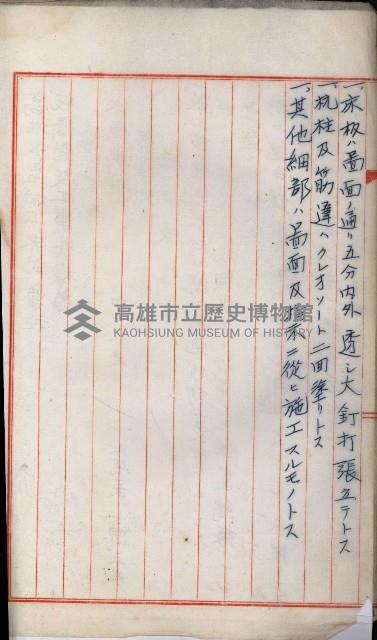 一、床板ハ啚面ノ通リ五分内外透シ大釘打張立テトス
一、杭柱及筋違ハクレオソート二回塗リトス
一、其他細部ハ啚面及指示ニ從ヒ施工スルモノトス
高雄市立歷史博物館
KAOHSIUNG MUSEUM OF HISTORY